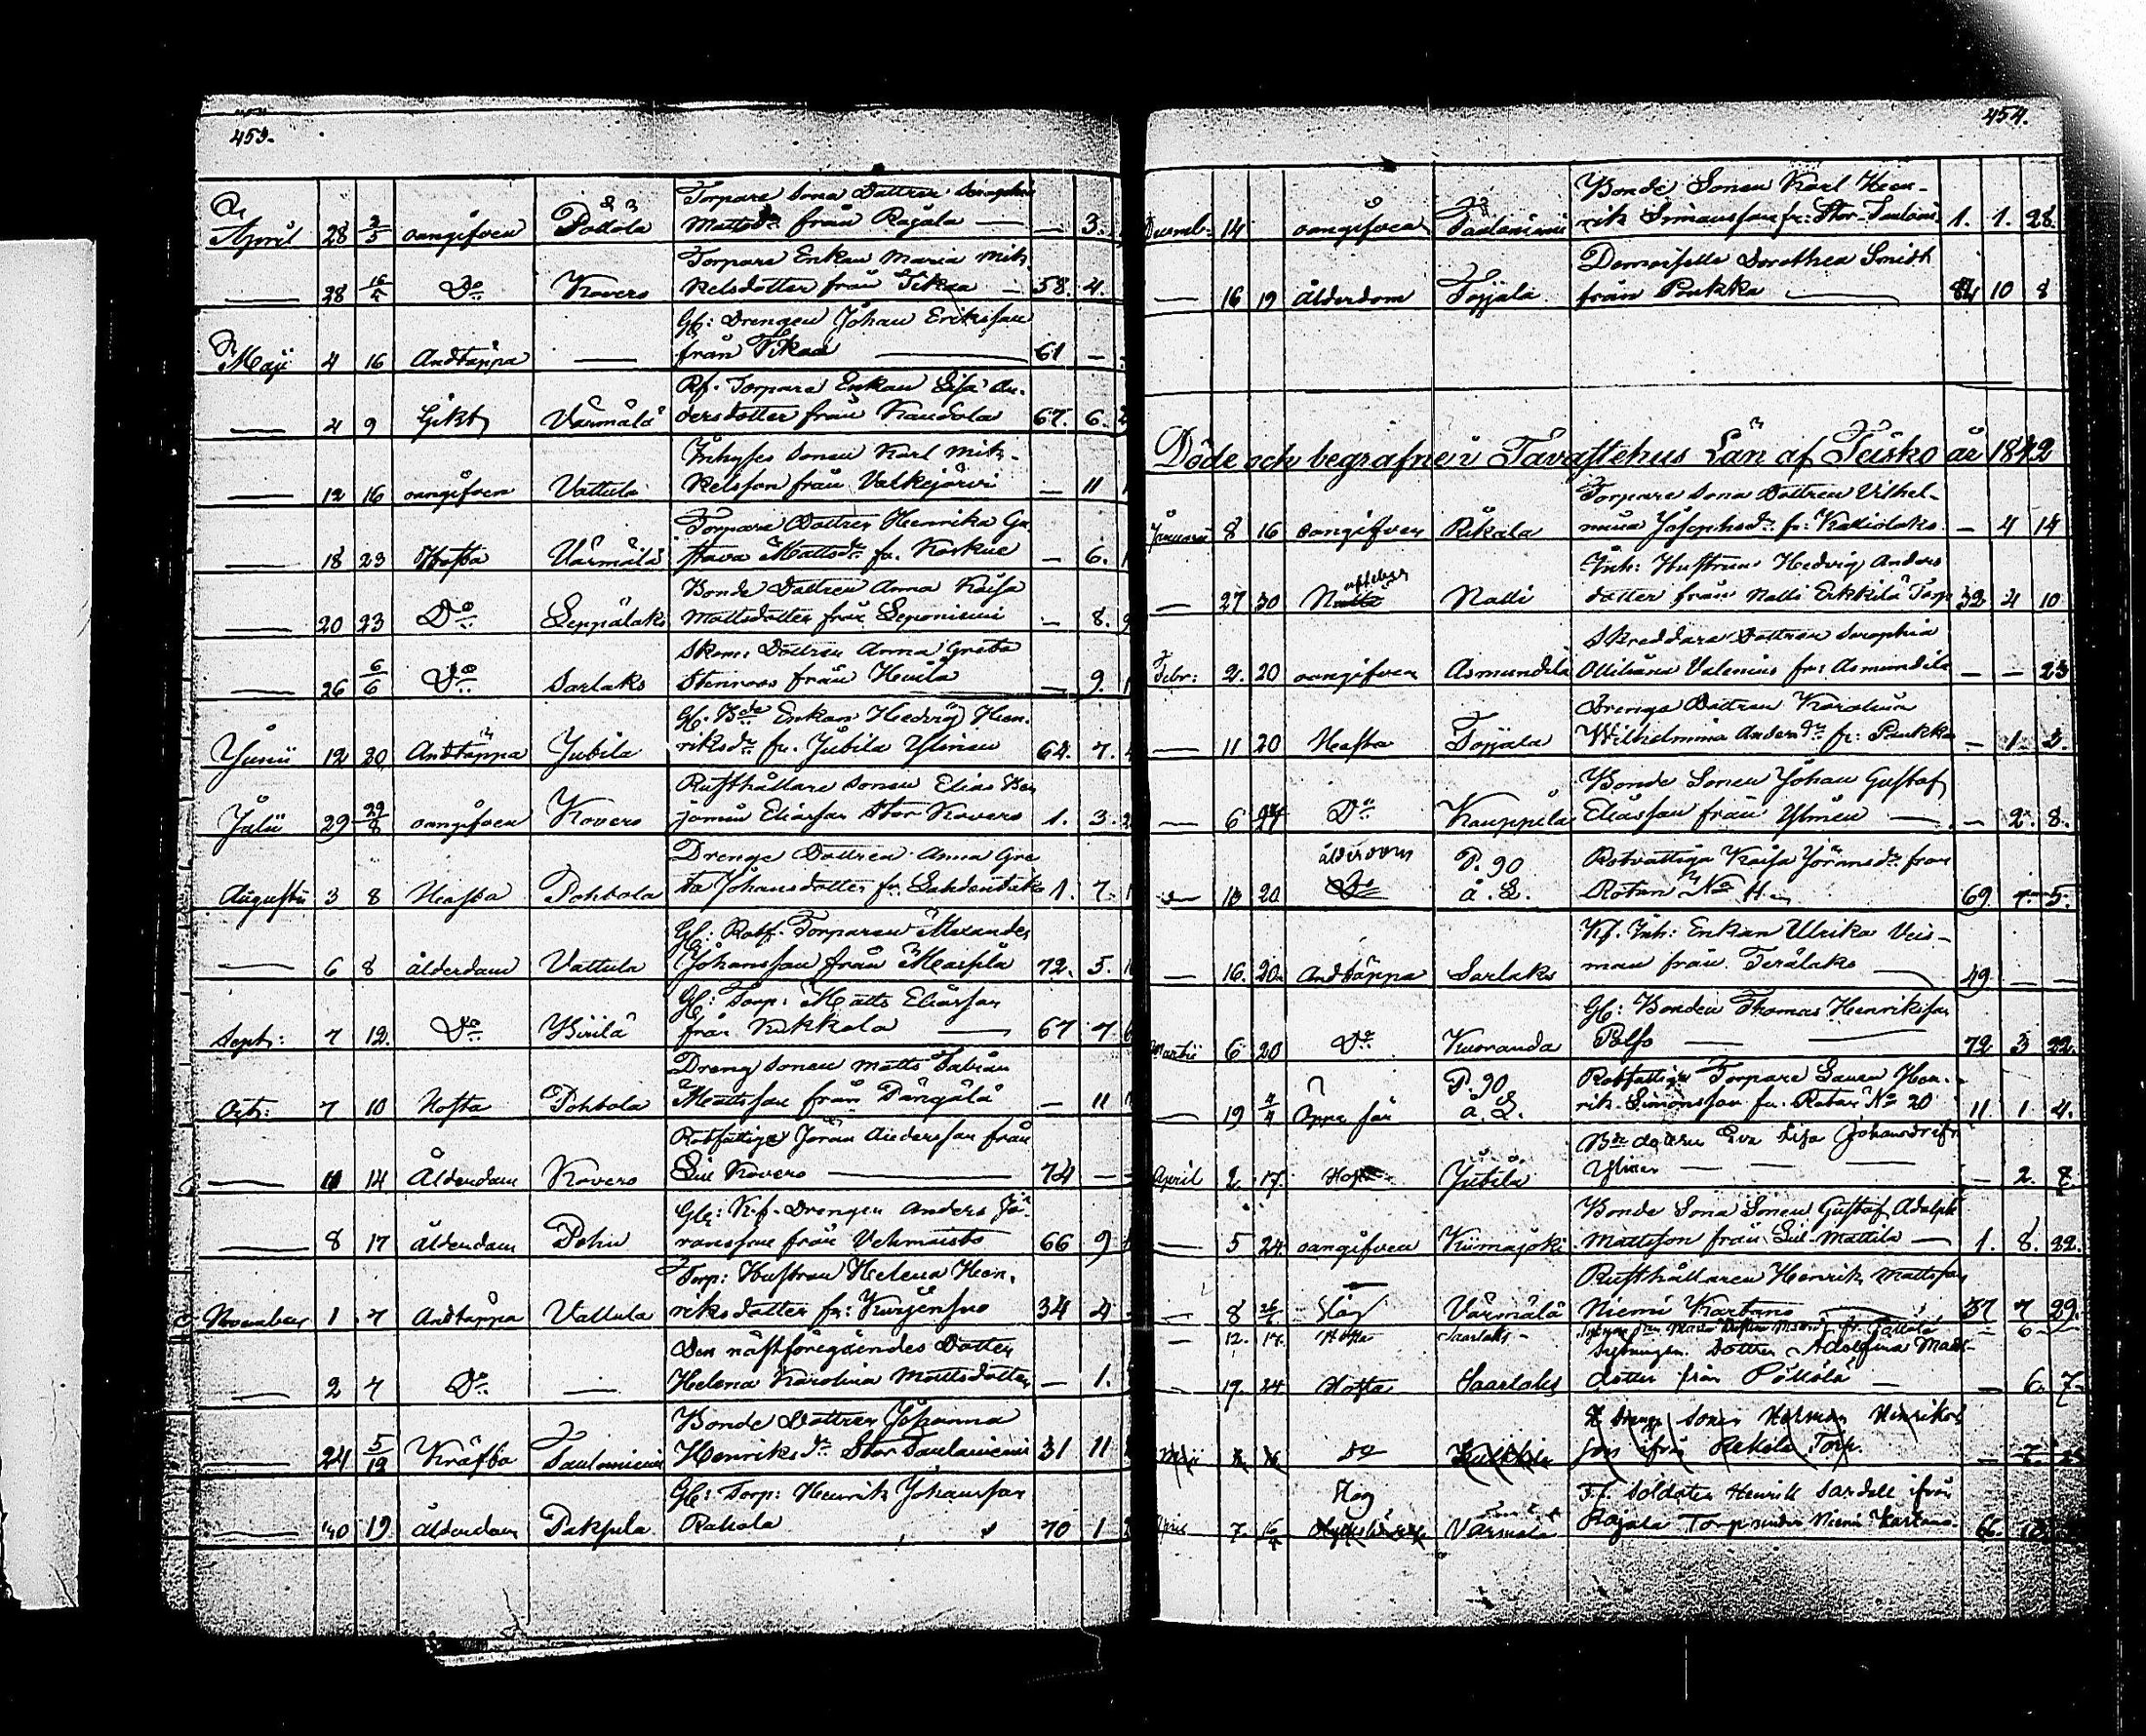 453.
April 28 3/5 oangifven Pöllölä Torpare Sona Dottren Seraphia
Mattsdr från Rajala — — 3.
— 28 16/4 Do Kovero Torpare Enkan Maria Mik-
kelsdotter från Tikaa — 58. 4.
Maji 4 16 Andtäppa — Gl: Drengen Johan Eriksson
från Tikaa — 61 —
— 4 9 Gikt Värmälä Rf. Torpare Enkan Lisa An-
dersdotter från Kaudola 67. 6.
— 12 16 oangifven Vattula Inhyses Sonen Karl Mik-
kelsson från Valkejärvi — 11
— 18 23 Hosta Värmälä Torpare Dottren Henrika Gu-
stava Mattsdr fr. Koskue — 6.
— 20 23 Do Leppälaks Bonde Dottren Anna Kaisa
Mattsdotter från Leponiemi — 8.
— 26 6/6 Do Sarlaks Skom: Dottren Anna Greta
Stenroos från Heulä — 9.
Junii 12 20 Andtäppa Jutila Gl. Bde Enkan Hedvig Hen-
riksdr fr. Jutila Ylinen 64. 7.
Julii 29 29/8 oangifven Kovero Rusthållare Sonen Elias Ben
jamin Eliasson Stor Kovero 1. 3.
Augusti 3 8 Hosta Pohtola Drenge Dottren Anna Gre
ta Johansdotter fr. Lahdentaka 1. 7.
— 6 8 ålderdom Vattula Gl: Rotf. Torparen Alexander
Johansson från Maspla 72. 5.
Sept: 7 12. Do Viitilä Gl: Torp: Matts Eliasson
från Kukkola — 67 7
Oct: 7 10 Hosta Pohtola Dreng Sonen Matts Fabian
Mattsson från Pängälä — 11
— 11 14 Ålderdom Kovero Rotfattige Jöran Andersson från
Lill Kovero — 74 —
— 8 17 ålderdom Pohu Gl: K.f. Drengen Anders Jö-
ransson från Vehmaisto 66 9
November 1 7 Andtäppa Vattula Torp: Hustrun Helena Hen-
riksdotter fr: Kurjensuo 34 4
— 2 7 Do — Den nästföregåendes Dotter
Helena Karolina Mattsdotter — 1.
— 24 5/12 Kräfta Taulaniemi Bonde Dottren Johanna
Henriksdr Stor Taulaniemi 31 11
— 30 19 Ålderdom Pakkula Gl: Torp: Henrik Johansson
Rahola 70 1
454.
Decemb: 14 oangifven Taulaniemi Bonde Sonen Karl Hen-
rik Simonsson fr: Stor-Taulani. 1. 1. 28.
— 16 19 Ålderdom Tojjala Demoiselle Dorothea Smidt
från Paukka — 84 10 8
Döde och begrafne i Tavastehus Län af Teisko år 1842
Januarii 8 16 oangifven Rikala Torpare Sona Dottren Vilhel-
mina Josephsdr fr: Kalliolaks — 4 14
— 27 30 Natti Inh: Hustrun Hedvig Anders
dotter från Natti Erkkilä Torp 32 4 10
Febr: 2. 20 oangifven Asmundila Skreddare Dottren Seraphia
Valenius fr: Asmundila — — 23
— 11 20 Hosta Tojjala Drenge Dottren Karolina
Wilhelmina Andersdr fr: Paukka — 1. 3.
— 6 27 Do Kauppila Bonde Sonen Johan Gustaf
Eliasson från Ylinen — — 2. 8.
— 13 20 ålderdom P. 90
å. L. Rotvattiga Kaisa Jöransdr från
Rotan No 4 69 7 5.
— 16. 20. Andtäppa Sarlaks Kf. Inh: Enkan Ulrika Veis-
man från Terälaks — 49 — —
Martii 6 20 Do Kuoranda Gl: Bonden Thomas Henriksson
Polso — 72 3 22.
— 19 4/4 Öppn sår P. 90
å. L. Rotfattiga Torpare Sonen Hen-
rik Simonsson fr. Rotan No 20 11 1 4.
April 2. 17. Hosta Jutila Bde dottren Eva Lisa Johansdr ifr
Ylinen — — — 2. 8
— 5 24 oangifven Kiimajoki Bonde Sona Sonen Gustaf Adolph
Mattsson från Lill-Mattila — 1. 8. 22.
— 8 26/4 Slag Värmälä Rusthållaren Henrik Mattsson
Niemi Kartano 37 7 29.
— 12. 17. Hosta Saarlaks — 6 —
— 19. 24 Hosta Saarlaks Sytningen. Dottren Adolfina Matts-
dotter från Pöllölä — — 6. 7.
Maji Do Kulkkila Drenge Sonen Herman Henriks
son ifrån Rekola Torp. —
April 7. 16/4 Slag Värmälä F.f. Soldaten Henrik Sardell ifrån
Rajala Torp under Niemi Kartano 66.